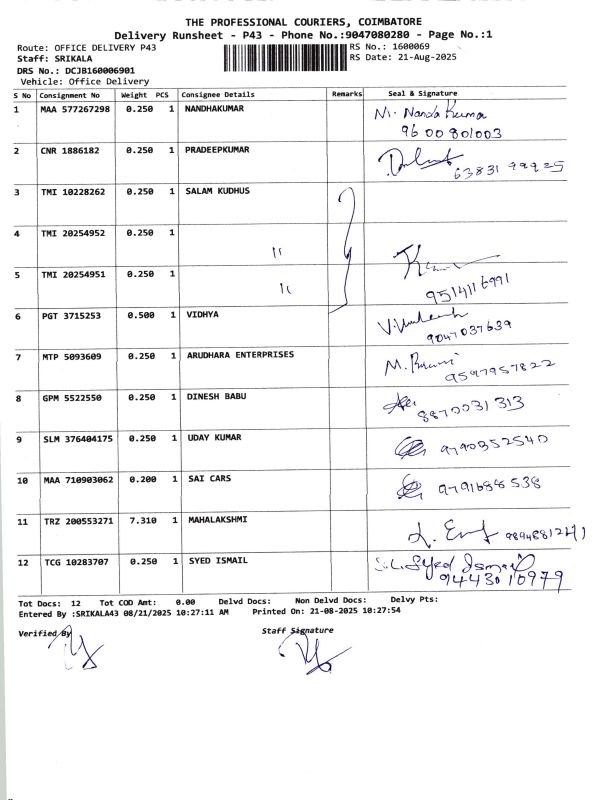 THE PROFESSIONAL COURIERS, COIMBATORE
Delivery Runsheet - P43 - Phone No.:9047080280 - Page No.:1
Route: OFFICE DELIVERY P43 RS No.: 1600069
Staff: SRIKALA RS Date: 21-Aug-2025
DRS No.: DCJB160006901
Vehicle: Office Delivery
S No Consignment No Weight PCS Consignee Details Remarks Seal & Signature
1 MAA 577267298 0.250 1 NANDHAKUMAR M. Nanda Kumar
9600801003
2 CNR 1886182 0.250 1 PRADEEPKUMAR
63831 99925
3 TMI 10228262 0.250 1 SALAM KUDHUS
4 TMI 20254952 0.250 1 "
5 TMI 20254951 0.250 1 "
9514116991
6 PGT 3715253 0.500 1 VIDHYA
9047037639
7 MTP 5093609 0.250 1 ARUDHARA ENTERPRISES
9597957822
8 GPM 5522550 0.250 1 DINESH BABU
8870031313
9 SLM 376404175 0.250 1 UDAY KUMAR 9790352540
10 MAA 710903062 0.200 1 SAI CARS 9791688538
11 TRZ 200553271 7.310 1 MAHALAKSHMI
12 TCG 10283707 0.250 1 SYED ISMAIL S.L. Syed Ismail
9443010979
Tot Docs: 12 Tot COD Amt: 0.00 Delvd Docs: Non Delvd Docs: Delvy Pts:
Entered By :SRIKALA43 08/21/2025 10:27:11 AM Printed On: 21-08-2025 10:27:54
Verified By Staff Signature